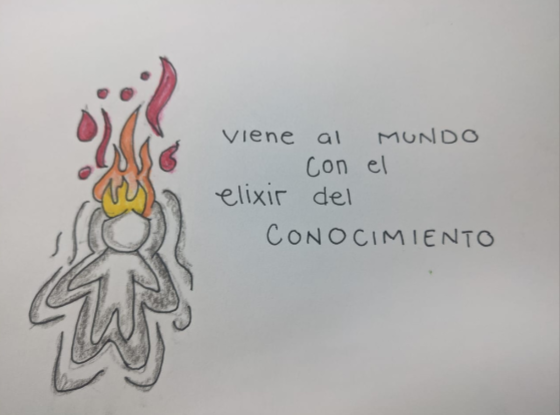 viene al MUNDO
con el
elixir del
CONOCIMIENTO